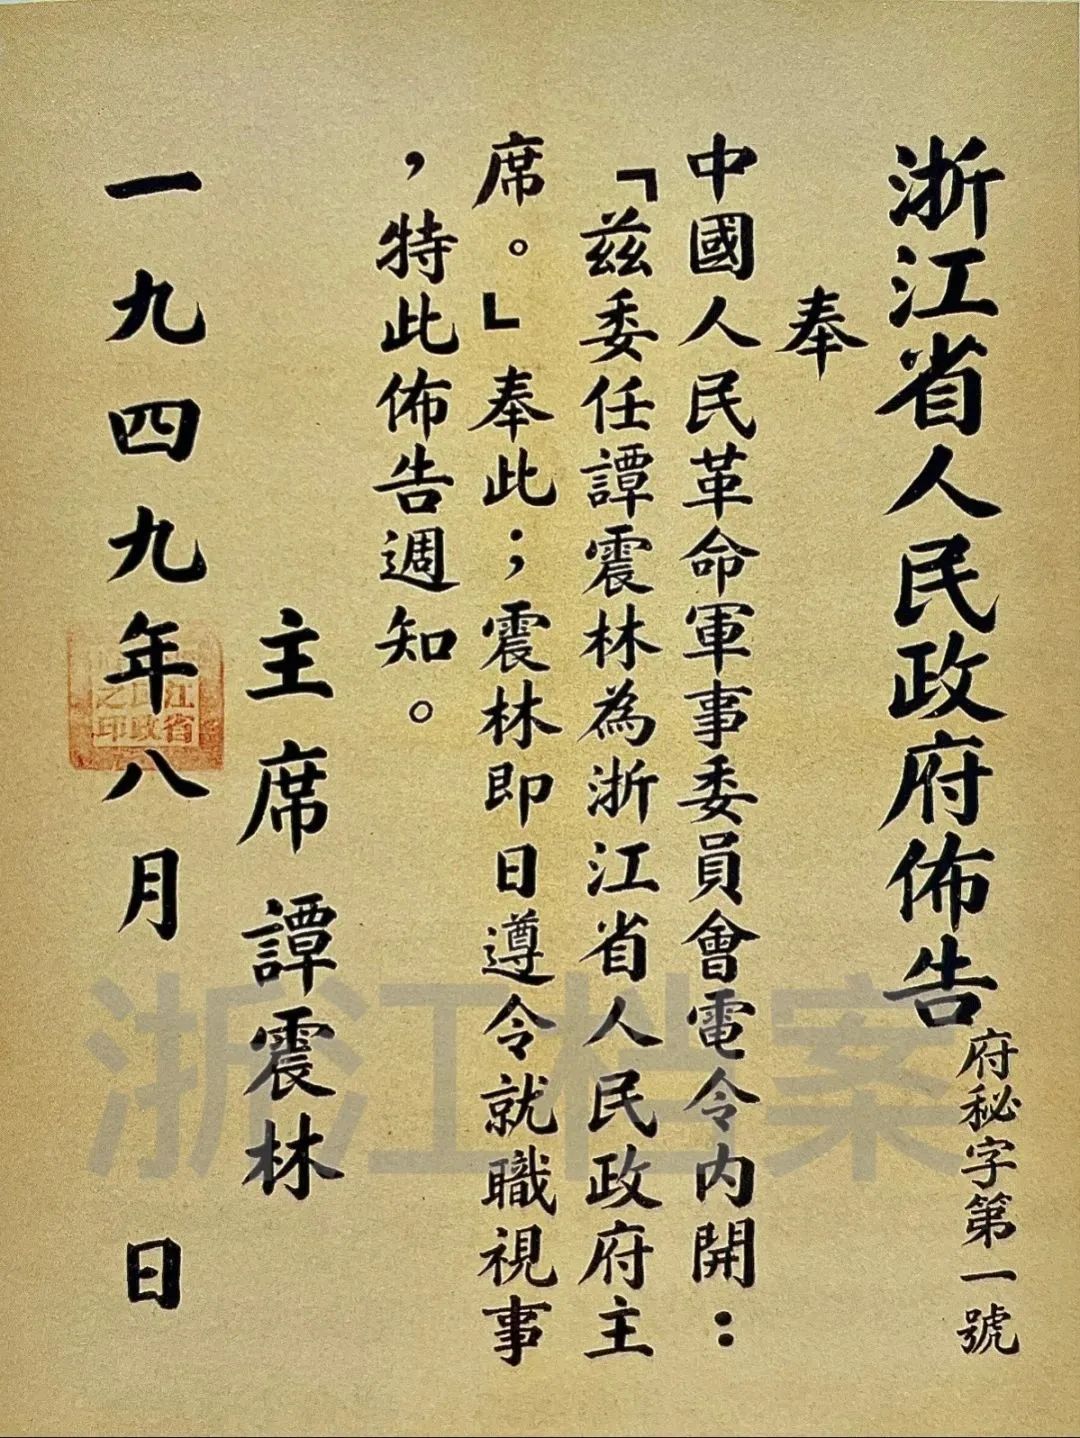 浙江省人民政府佈告
府秘字第一號
奉
中國人民革命軍事委員會電令內開：
「茲委任譚震林為浙江省人民政府主
席。」奉此；震林即日遵令就職視事
，特此佈告週知。
主席譚震林
一九四九年八月 日
江省
民政
之印
浙江档案